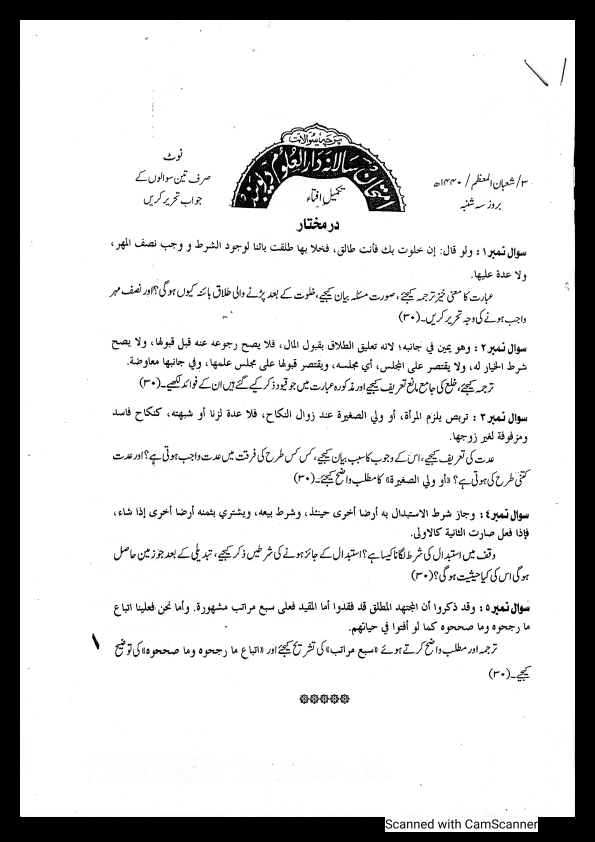 پرچۂ سوالات
امتحان سالانہ دارالعلوم دیوبند
تکمیل افتاء
۳/ شعبان المعظم/ ۱۴۴۰ھ
بروز سہ شنبہ
نوٹ
صرف تین سوالوں کے
جواب تحریر کریں
در مختار
سوال نمبر۱: ولو قال: إن خلوت بك فأنت طالق، فخلا بها طلقت بائنا لوجود الشرط و وجب نصف المهر،
ولا عدة عليها.
عبارت کا معنی خیز ترجمہ کیجئے، صورت مسئلہ بیان کیجیے، خلوت کے بعد پڑنے والی طلاق بائنہ کیوں ہوگی؟ اور نصف مہر
واجب ہونے کی وجہ تحریر کریں۔ (۳۰)
سوال نمبر۲: وهو يمين في جانبه؛ لانه تعليق الطلاق بقبول المال، فلا يصح رجوعه عنه قبل قبولها، ولا يصح
شرط الخيار له، ولا يقتصر على المجلس، أي مجلسه، ويقتصر قبولها على مجلس علمها، وفي جانبها معاوضة.
ترجمہ کیجئے، خلع کی جامع مانع تعریف کیجیے اور مذکورہ عبارت میں جو قیود ذکر کیے گئے ہیں ان کے فوائد لکھیے۔ (۳۰)
سوال نمبر۳: تربص يلزم المرأة، أو ولي الصغيرة عند زوال النكاح، فلا عدة لزنا أو شبهته، كنكاح فاسد
ومزفوفة لغير زوجها.
عدت کی تعریف کیجیے، اس کے وجوب کا سبب بیان کیجیے، کس کس طرح کی فرقت میں عدت واجب ہوتی ہے؟ اور عدت
کتنی طرح کی ہوتی ہے؟ «أو ولي الصغيرة» کا مطلب واضح کیجئے۔ (۳۰)
سوال نمبر۴: وجاز شرط الاستبدال به أرضا أخرى حينئذ، وشرط بيعه، ويشتري بثمنه أرضا أخرى إذا شاء،
فإذا فعل صارت الثانية كالاولى.
وقف میں استبدال کی شرط لگانا کیسا ہے؟ استبدال کے جائز ہونے کی شرطیں ذکر کیجیے، تبدیلی کے بعد جو زمین حاصل
ہوگی اس کی کیا حیثیت ہوگی؟ (۳۰)
سوال نمبر۵: وقد ذكروا أن المجتهد المطلق قد فقدوا أما المقيد فعلى سبع مراتب مشهورة. وأما نحن فعلينا اتباع
ما رجحوه وما صححوه كما لو أفتوا في حياتهم.
ترجمہ اور مطلب واضح کرتے ہوئے «سبع مراتب» کی تشریح کیجئے اور «اتباع ما رجحوه وما صححوه» کی توضیح
کیجیے۔ (۳۰)
Scanned with CamScanner